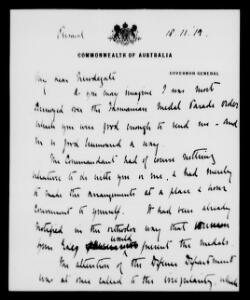 Personal
18.11.19.
COMMONWEALTH OF AUSTRALIA
GOVERNOR GENERAL
My dear Newdegate
As you may imagine I was most
annoyed over the Tasmanian Medal Parade order
which you were good enough to send me – and
in so good humoured a way.
The Commandant had of course nothing
whatever to do with you or me, & had merely
to make the arrangements at a place & hour
convenient to yourself. It had been already
notified in the orthodox way that
your Excy would present the medals.
The attention of the Defence Department
was at once called to the irregularity, which